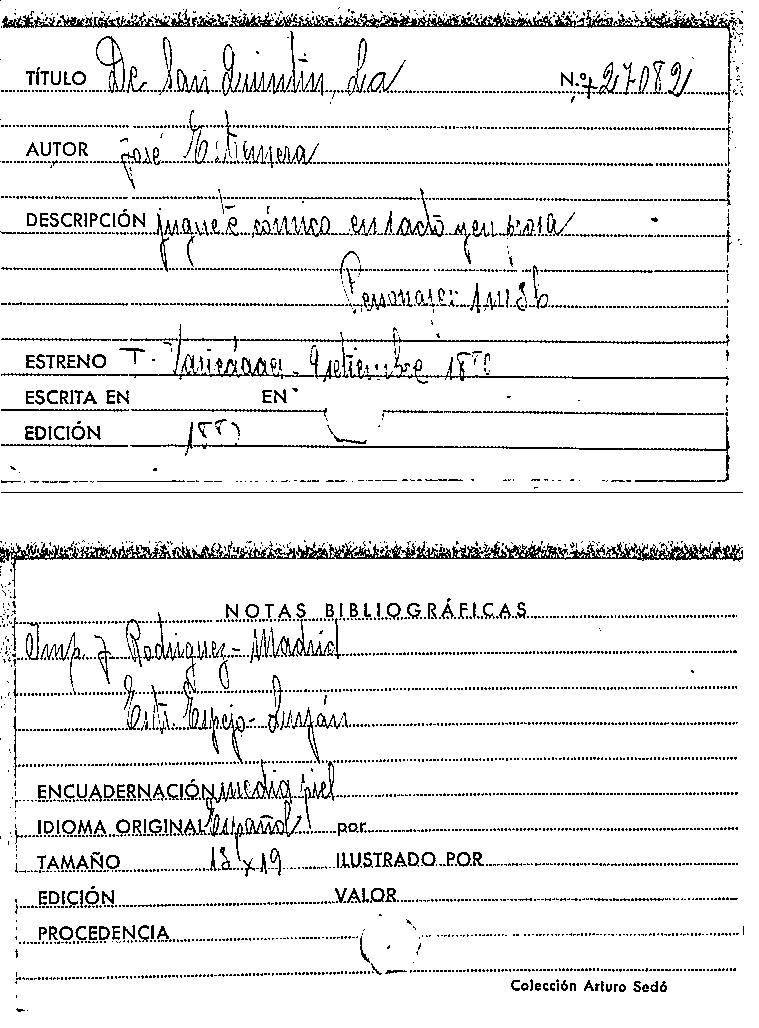 TÍTULO De San Quintín, La N.º 27082
AUTOR José Estremera
DESCRIPCIÓN juguete cómico en 1 acto y en prosa
Personajes:
ESTRENO T. Variedades. Septiembre
ESCRITA EN EN
EDICIÓN
NOTAS BIBLIOGRÁFICAS
Imp. J Rodriguez - Madrid
Estr. Espejo - Luján
ENCUADERNACIÓN media piel
IDIOMA ORIGINAL Español por
TAMAÑO ILUSTRADO POR
EDICIÓN VALOR
PROCEDENCIA
Colección Arturo Sedó